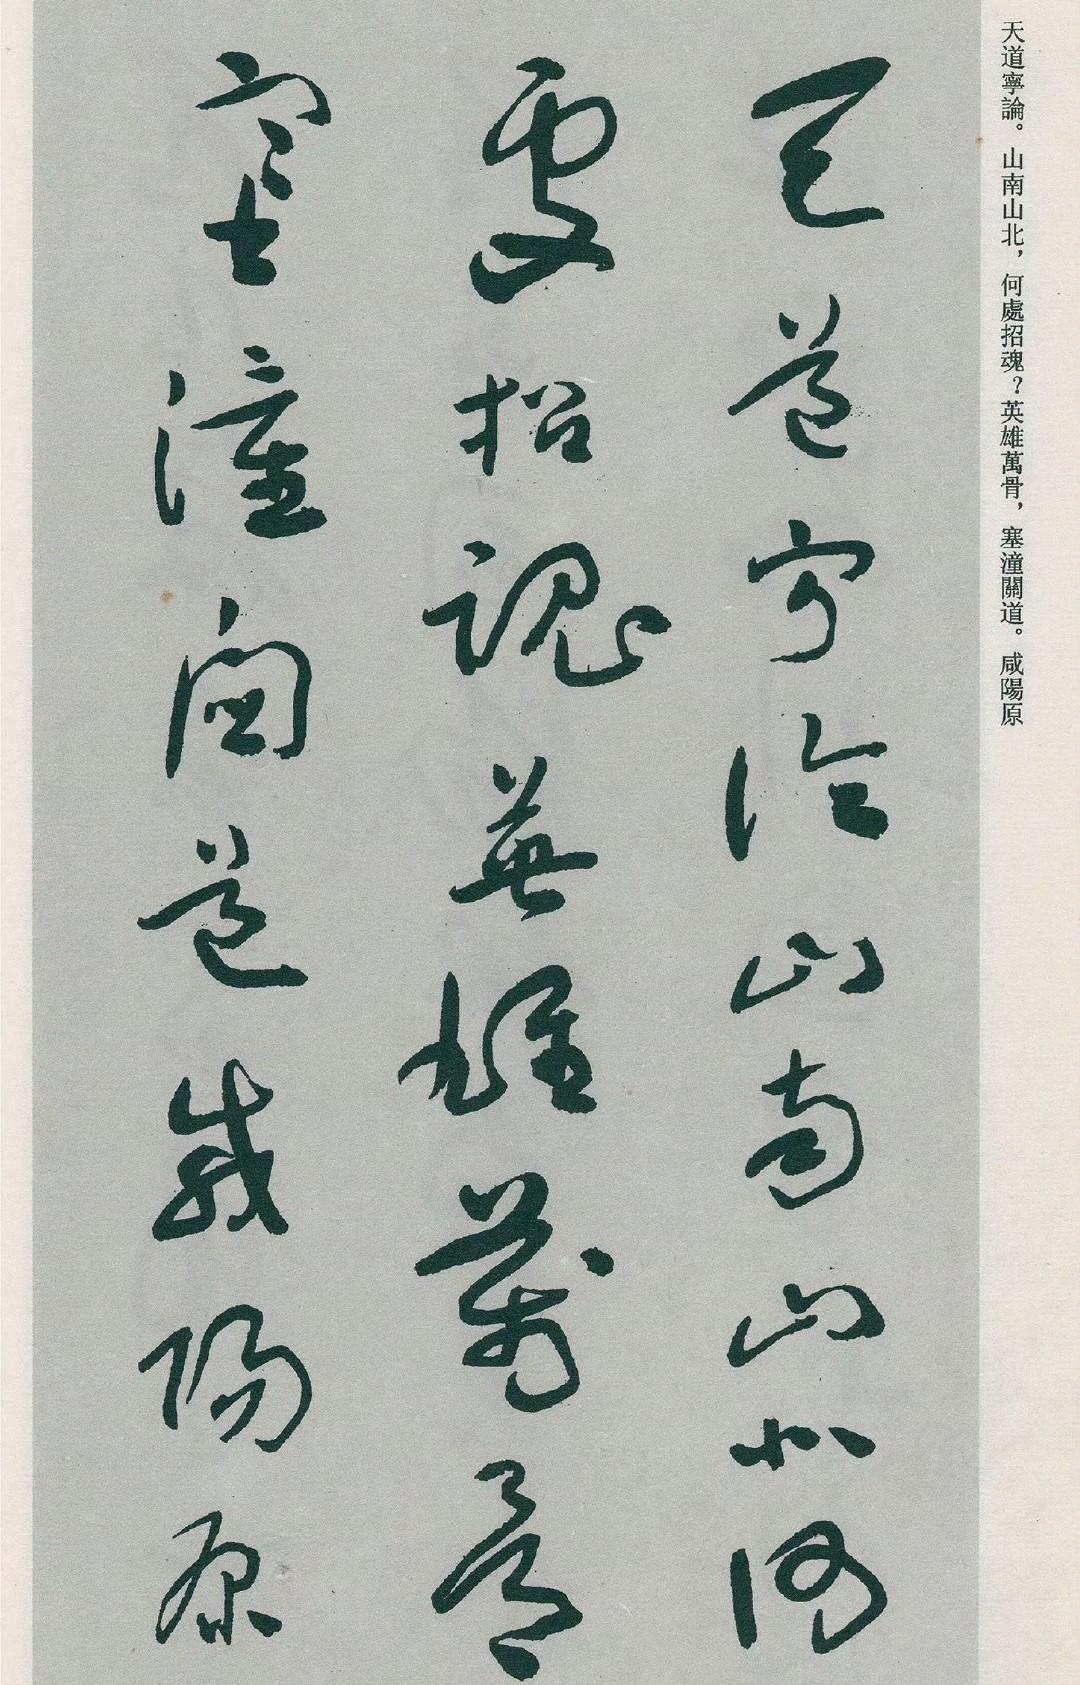 天道寧論。山南山北，何處招魂？英雄萬骨，塞潼關道。咸陽原
天道寧論山南山北何
處招魂英雄萬骨
塞潼關道咸陽原